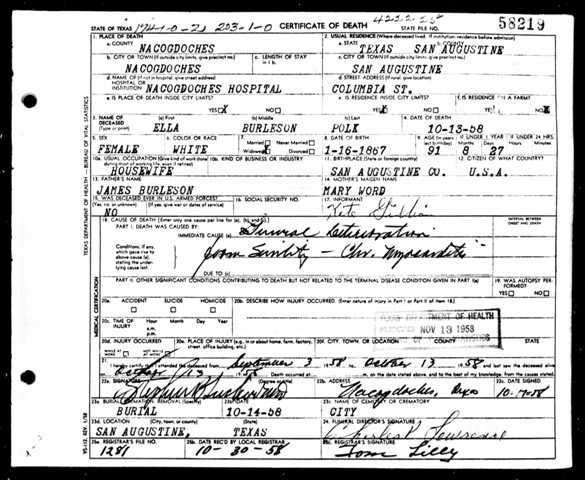 STATE OF TEXAS 174-1-0-2) 203-1-0 CERTIFICATE OF DEATH STATE FILE NO. 58219
1. PLACE OF DEATH 2. USUAL RESIDENCE (Where deceased lived. If institution: residence before admission)
a. COUNTY NACOGDOCHES a. STATE TEXAS b. COUNTY SAN AUGUSTINE
b. CITY OR TOWN (If outside city limits, give precinct no.) NACOGDOCHES c. LENGTH OF STAY c. CITY OR TOWN (If outside city limits, give precinct no.) SAN AUGUSTINE
d. NAME OF HOSPITAL OR INSTITUTION (If not in hospital, give street address) NACOGDOCHES HOSPITAL d. STREET ADDRESS (If rural, give location) COLUMBIA ST.
e. IS PLACE OF DEATH INSIDE CITY LIMITS? YES X NO e. IS RESIDENCE INSIDE CITY LIMITS? YES NO f. IS RESIDENCE ON A FARM? YES NO X
3. NAME OF DECEASED (Type or print) (a) First ELLA (b) Middle BURLESON (c) Last POLK 4. DATE OF DEATH 10-13-58
5. SEX FEMALE 6. COLOR OR RACE WHITE 7. Married Never Married Widowed X Divorced 8. DATE OF BIRTH 1-16-1867 9. AGE (In years) 91 8 27
10a. USUAL OCCUPATION (Give kind of work done during most of working life, even if retired) HOUSEWIFE 10b. KIND OF BUSINESS OR INDUSTRY 11. BIRTHPLACE (State or foreign country) SAN AUGUSTINE CO. 12. CITIZEN OF WHAT COUNTRY? U.S.A.
13. FATHER'S NAME JAMES BURLESON 14. MOTHER'S MAIDEN NAME MARY WORD
15. WAS DECEASED EVER IN U.S. ARMED FORCES? (Yes, no, or unknown) (If yes, give war or dates of service) NO 16. SOCIAL SECURITY NO. 17. INFORMANT
18. CAUSE OF DEATH (Enter only one cause per line for (a), (b), and (c).) INTERVAL BETWEEN ONSET AND DEATH
PART I. DEATH WAS CAUSED BY:
IMMEDIATE CAUSE (a)
Conditions, if any, which gave rise to above cause (a), stating the underlying cause last. from Senility - Chr. Myocarditis
DUE TO (c)
PART II. OTHER SIGNIFICANT CONDITIONS CONTRIBUTING TO DEATH BUT NOT RELATED TO THE TERMINAL DISEASE CONDITION GIVEN IN PART I (a) 19. WAS AUTOPSY PERFORMED? YES NO
20a. ACCIDENT SUICIDE HOMICIDE 20b. DESCRIBE HOW INJURY OCCURRED. (Enter nature of injury in Part I or Part II of item 18.)
20c. TIME OF INJURY Hour a.m. p.m. Month Day Year
NOV 13 1958
20e. PLACE OF INJURY (e.g., in or about home, farm, factory, street, office building, etc.) 20f. CITY, TOWN, OR LOCATION COUNTY STATE
21. I hereby certify that I attended the deceased from September 3 1958 to October 13 1958 and last saw the deceased alive
22a. SIGNATURE (Degree or title) 22b. ADDRESS Nacogdoches, Texas 22c. DATE SIGNED
23a. BURIAL, CREMATION, REMOVAL (Specify) BURIAL 23b. DATE 10-14-58 23c. NAME OF CEMETERY OR CREMATORY CITY
23d. LOCATION (City, town, or county) (State) SAN AUGUSTINE, TEXAS 24. FUNERAL DIRECTOR'S SIGNATURE
25a. REGISTRAR'S FILE NO. 1281 25b. DATE REC'D BY LOCAL REGISTRAR 10-30-58 25c. REGISTRAR'S SIGNATURE Tom Lilly